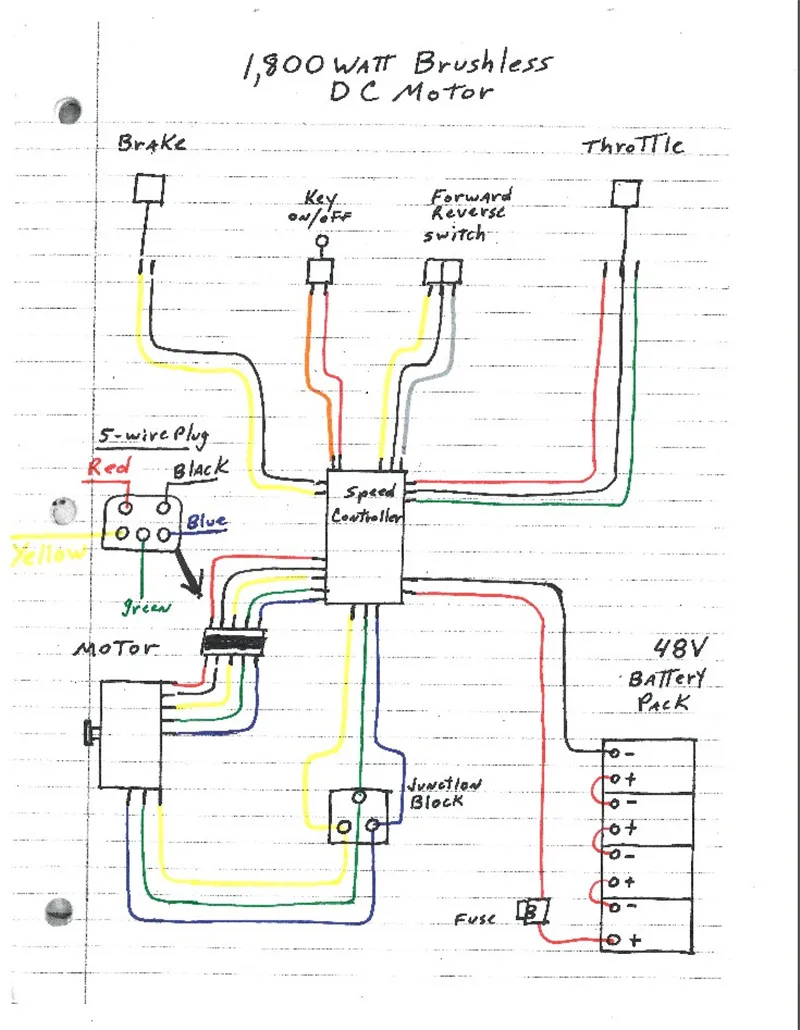 1,800 WATT Brushless
DC Motor
Brake
Throttle
Key
ON/OFF
Forward
Reverse
switch
5-wire Plug
Red
Black
Blue
Yellow
green
Speed
Controller
Motor
48V
Battery
Pack
Junction
Block
Fuse
-
+
-
+
-
+
-
+